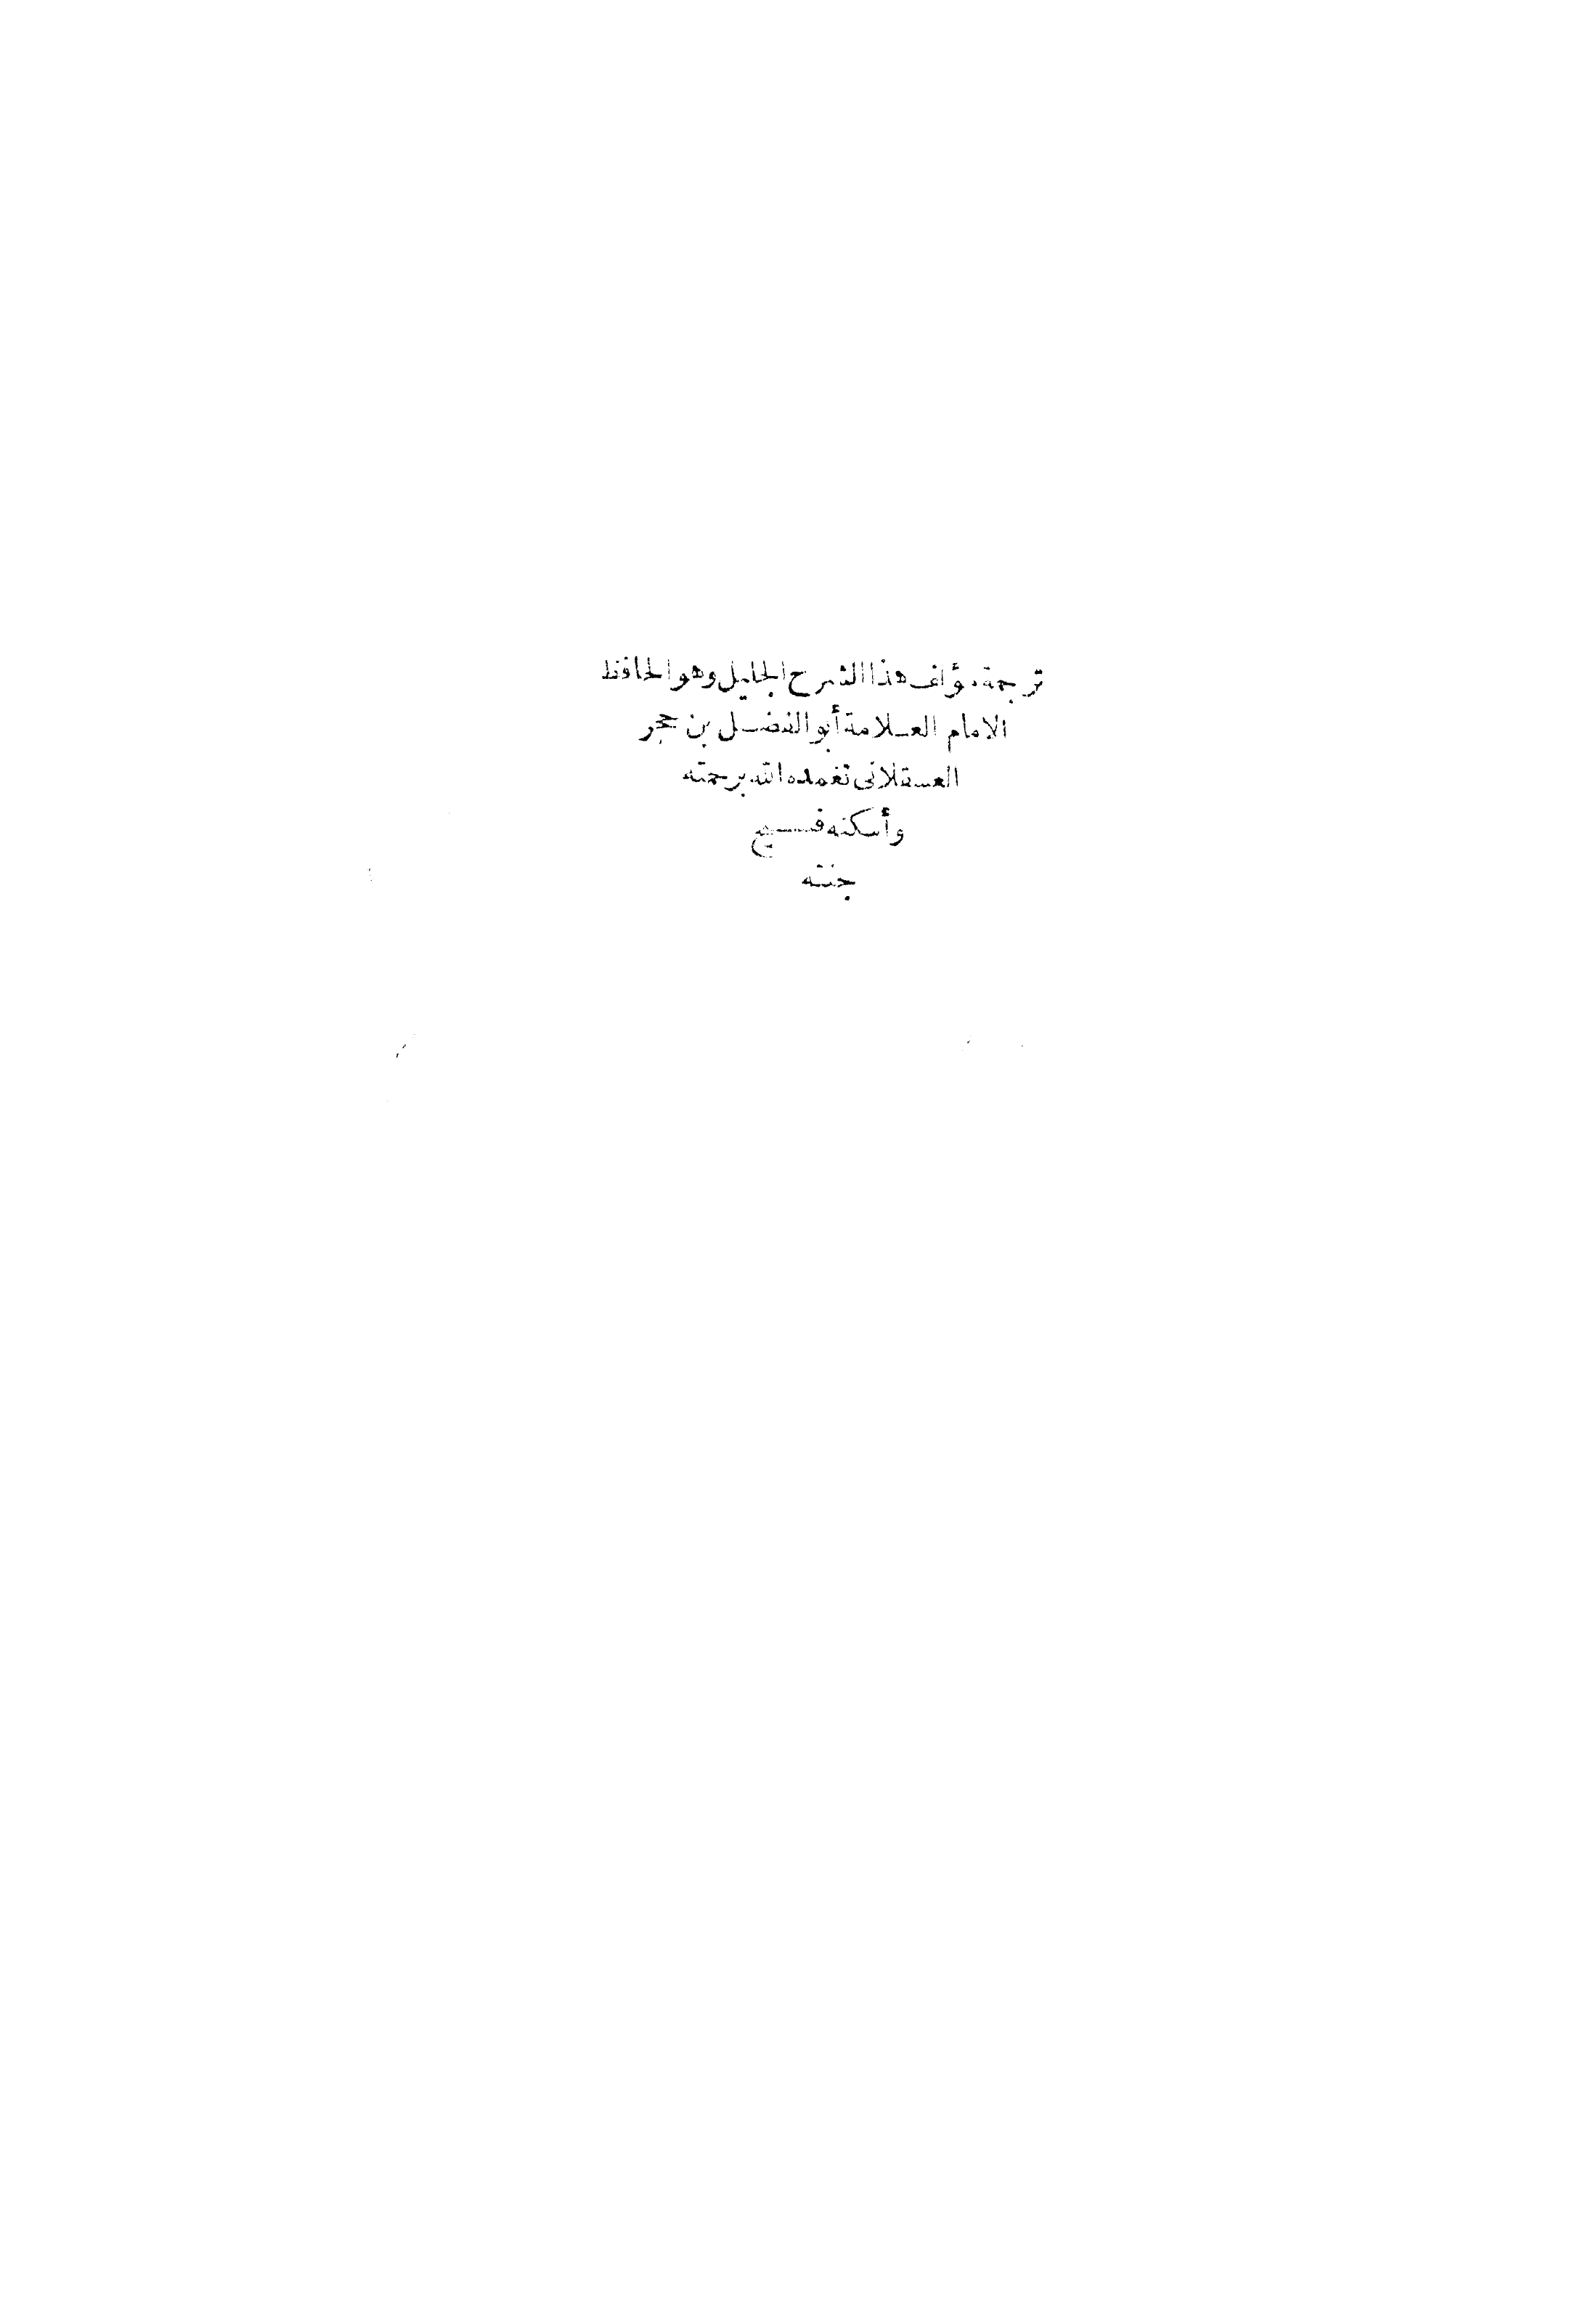 ترجمة مؤلف هذا الشرح الجليل وهو الحافظ
الامام العلامة أبو الفضل بن حجر
العسقلانى تغمده الله برحمته
وأسكنه فسيح
جنته